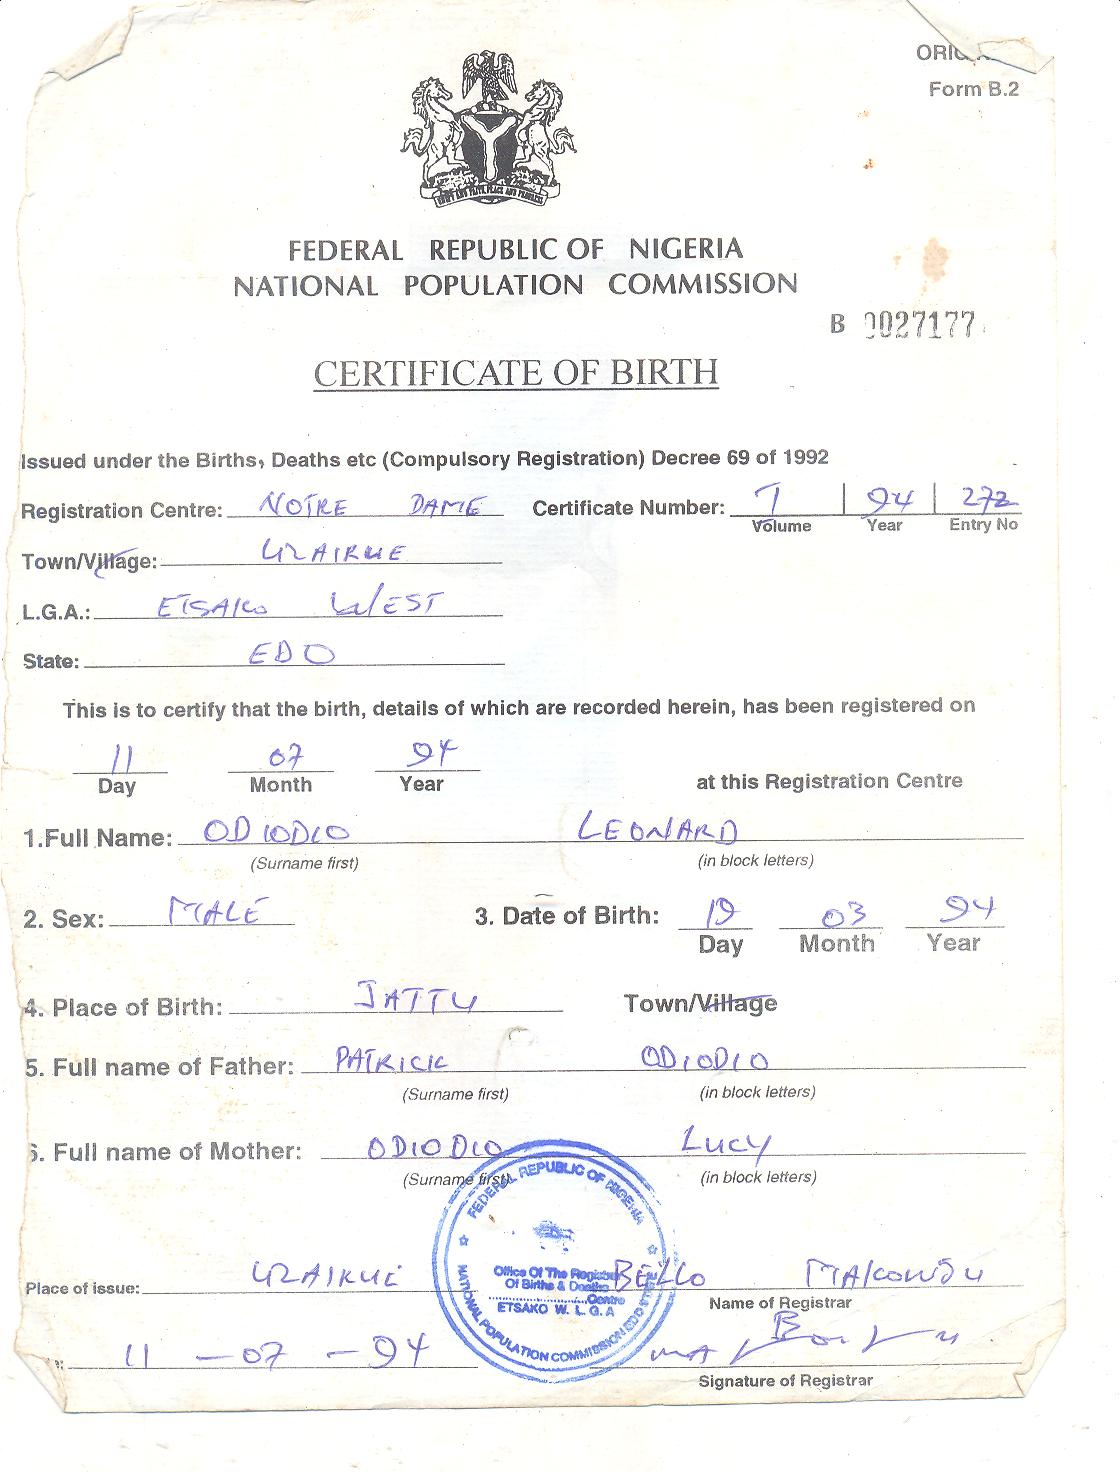 Form B.2
FEDERAL REPUBLIC OF NIGERIA
NATIONAL POPULATION COMMISSION
B 0027177
CERTIFICATE OF BIRTH
Issued under the Births, Deaths etc (Compulsory Registration) Decree 69 of 1992
Registration Centre: NOTRE DAME Certificate Number: 1 | 94 | 272
Volume Year Entry No
Town/Village: UZAIRUE
L.G.A.: ETSAKO WEST
State: EDO
This is to certify that the birth, details of which are recorded herein, has been registered on
11 07 94
Day Month Year at this Registration Centre
1.Full Name: ODIODIO LEONARD
(Surname first) (in block letters)
2. Sex: MALE 3. Date of Birth: 19 03 94
Day Month Year
4. Place of Birth: JATTU Town/Village
5. Full name of Father: PATRICK ODIODIO
(Surname first) (in block letters)
6. Full name of Mother: ODIODIO LUCY
(Surname first) (in block letters)
FEDERAL REPUBLIC OF NIGERIA
Office Of The Registrar
Of Births & Deaths
Centre
ETSAKO W. L.G.A
NATIONAL POPULATION COMMISSION EDO STATE
Place of issue: UZAIRUE BELLO
Name of Registrar
11 - 07 - 94
Signature of Registrar